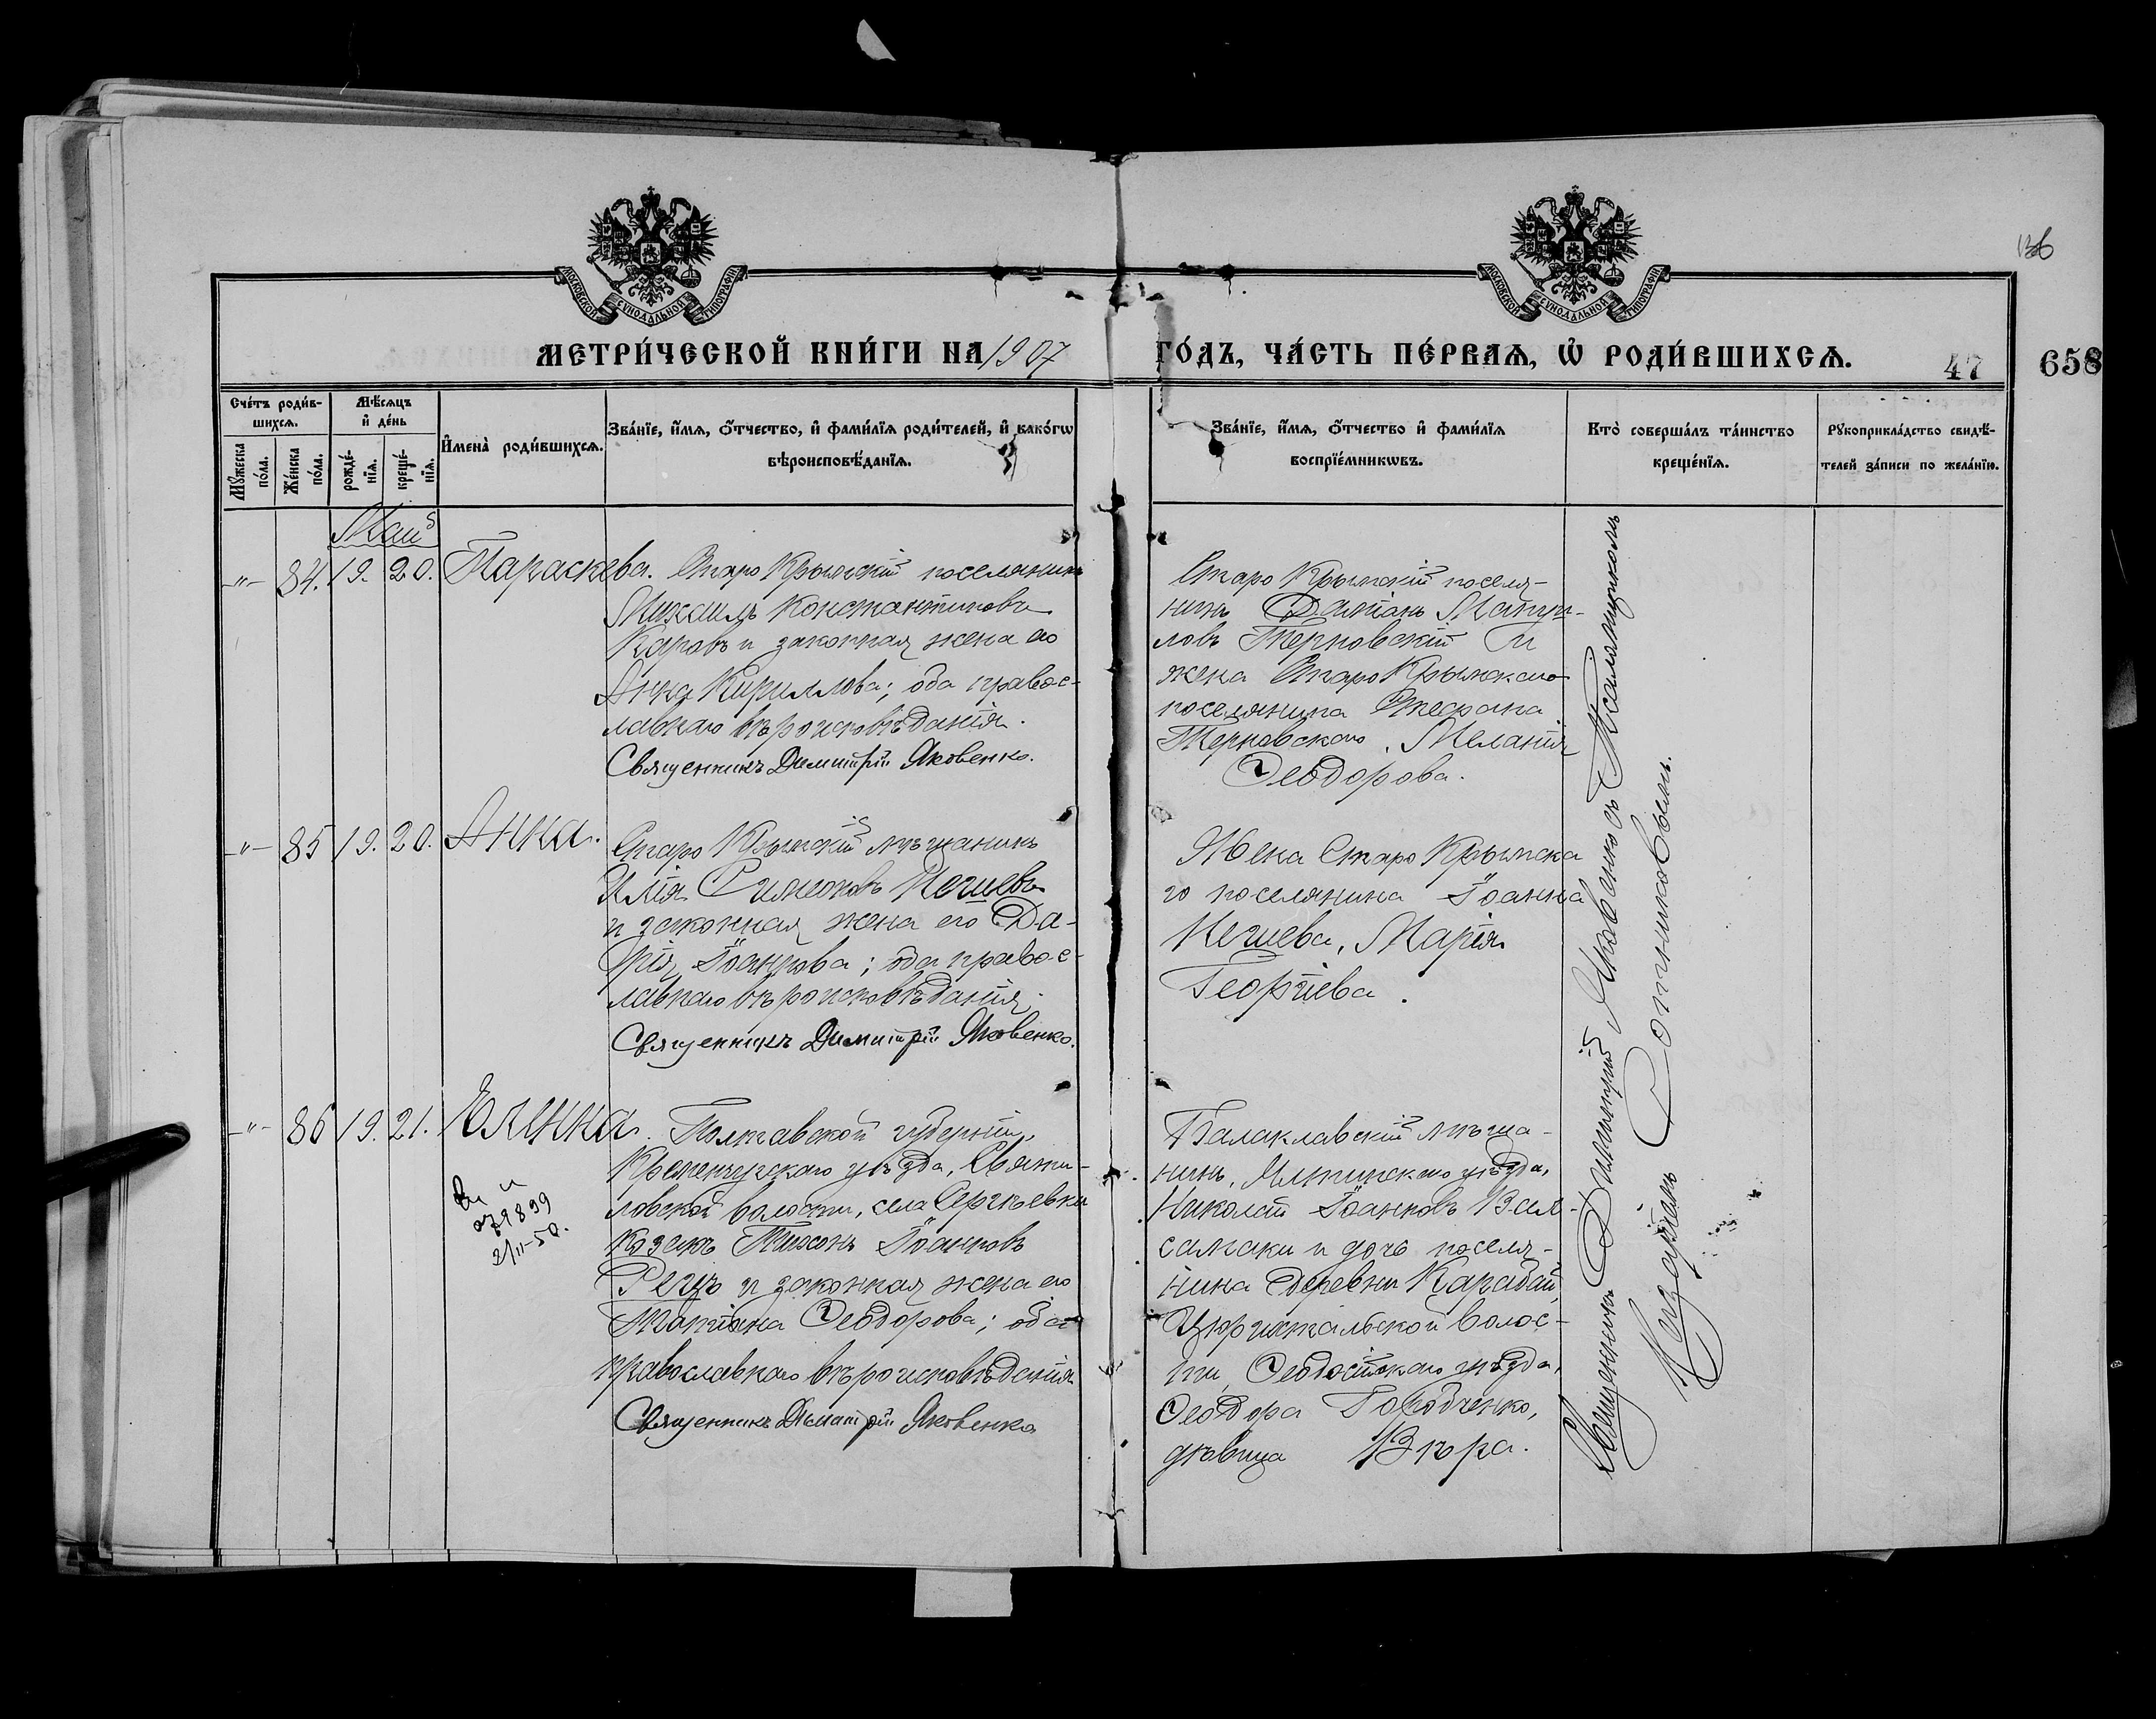 136
МОСКОВСКОЙ СѴНОДАЛЬНОЙ ТИПОГРАФІИ
МОСКОВСКОЙ СѴНОДАЛЬНОЙ ТИПОГРАФІИ
МЕТРИ́ЧЕСКОЙ КНИ́ГИ НА 1907
ГО́ДЪ, ЧА́СТЬ ПЕ́РВАѦ, Ѡ҆ РОДИ́ВШИХСѦ.
47
658
Сче́тъ роди́в-
шихсѧ.
Мѣ́сѧцъ
и҆ де́нь
Мꙋ́жеска
по́ла.
Же́нска
по́ла.
рожде́-
нїѧ.
креще́-
нїѧ.
И҆мена̀ роди́вшихсѧ.
Зва́нїе, и҆́мѧ, ѻ҆́тчество, и҆ фами́лїѧ роди́телей, и҆ како́гѡ
вѣроисповѣ́данїѧ.
Зва́нїе, и҆́мѧ, ѻ҆́тчество и҆ фами́лїѧ
воспрїе́мникѡвъ.
Кто̀ соверша́лъ та́инство
креще́нїѧ.
Рꙋкоприкла́дство свидѣ́-
телей за́писи по жела́нїю.
Май
-"- 84. 19. 20. Параскева.
Старо Крымскій поселянинъ
Михаилъ Константиновъ
Каровъ и законная жена его
Анна Кириллова; оба правос-
лавнаго вѣроисповѣданія.
Священникъ Димитрій Яковенко.
Старо Крымскій поселя-
нинъ Даміанъ
ловъ Терновскій и
жена Старо Крымскаго
поселянина Стефана
Терновскаго, Меланія
Ѳеодорова.
-"- 85 19. 20. Анна.
Старо Крымскій мѣщанинъ
Илія Симеоновъ Нечиевъ
и законная жена его Да-
рія Іоаннова; оба правос-
лавнаго вѣроисповѣданія.
Священникъ Димитрій Яковенко.
Жена Старо Крымска
го поселянина Іоанна
Нечиева, Марія
Георгіева.
-"- 86 19. 21. Елена
Полтавской губерніи,
Кременчугскаго уѣзда,
ловской волости, села Сергѣевки
козакъ Тихонъ Іоанновъ
Рецъ и законная жена его
Татіана Ѳеодорова; оба
православнаго вѣроисповѣданія
Священникъ Димитрій Яковенко
Балаклавскій мѣща-
нинъ, Ялтинскаго уѣзда,
Николай Іоанновъ Вал-
самаки и дочь поселя-
нина деревни Карабай,
Цюрихтальской волос-
ти, Ѳеодосійскаго уѣзда,
Ѳеодора Голодченко,
дѣвица Вѣра.
Священникъ Димитрій Яковенко съ Псаломщикомъ
Назаріемъ Сотниковымъ.